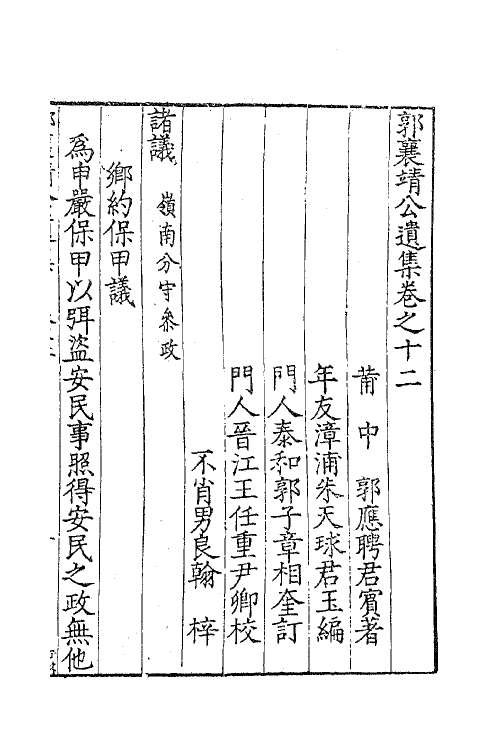 郭襄靖公遺集卷之十二
莆中 郭應聘君賓著
年友漳浦朱天球君玉編
門人泰和郭子章相奎訂
門人晉江王任重尹卿校
不肖男良翰 梓
諸議 嶺南分守參政
鄉約保甲議
爲申嚴保甲以弭盜安民事照得安民之政無他